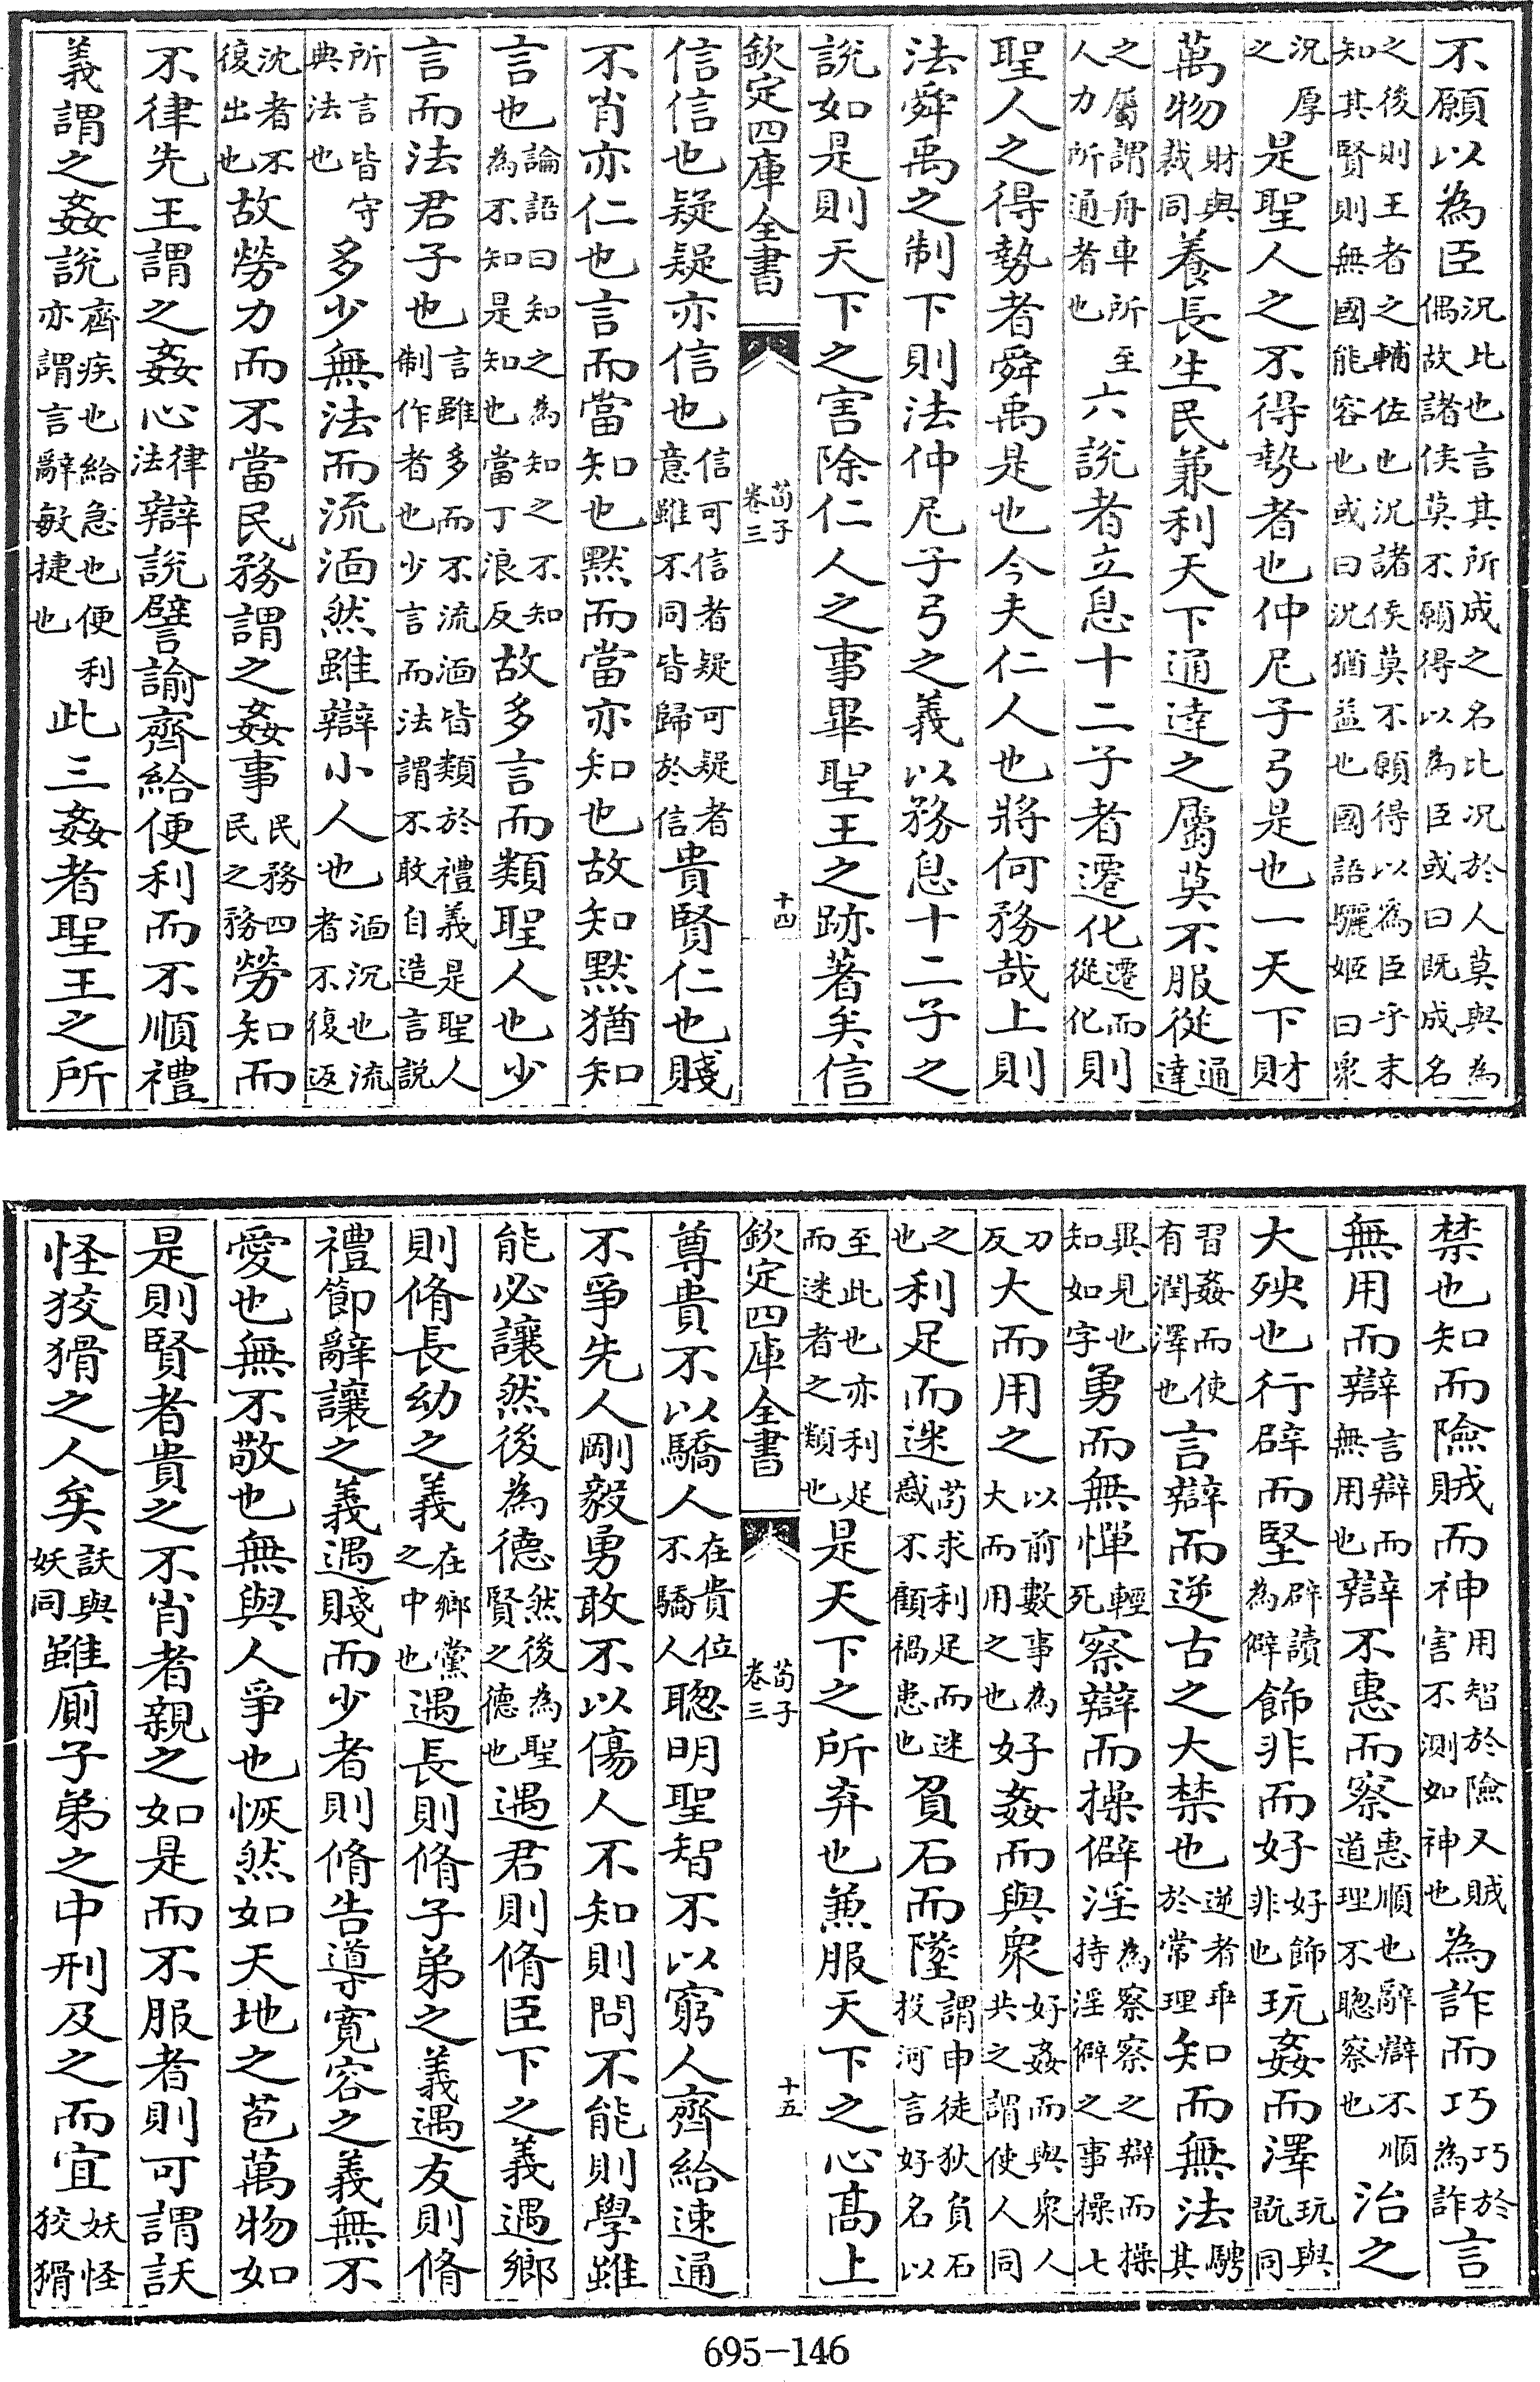 不願以為臣況比也言其所成之名比況於人莫與為偶故諸侯莫不願得以為臣或曰既成名
之後則王者之輔佐也況諸侯莫不願得以為臣乎末知其賢則無國能容也或曰況猶益也國語驪姬曰衆
況厚之是聖人之不得勢者也仲尼子弓是也一天下財
萬物財與裁同養長生民兼利天下通達之屬莫不服從通達
之屬謂舟車所至人力所通者也六說者立息十二子者遷化遷而從化則
聖人之得勢者舜禹是也今夫仁人也將何務哉上則
法舜禹之制下則法仲尼子弓之義以務息十二子之
說如是則天下之害除仁人之事畢聖王之跡著矣信
欽定四庫全書 荀子卷三 十四
信信也疑疑亦信也信可信者疑可疑者意雖不同皆歸於信貴賢仁也賤
不肖亦仁也言而當知也黙而當亦知也故知黙猶知
言也論語曰知之為知之不知為不知是知也當丁浪反故多言而類聖人也少
言而法君子也言雖多而不流湎皆類於禮義是聖人制作者也少言而法謂不敢自造言説
所言皆守典法也多少無法而流湎然雖辯小人也湎沉也流者不復返
沈者不復出也故勞力而不當民務謂之姦事民務四民之務勞知而
不律先王謂之姦心律法辯説譬諭齊給便利而不順禮
義謂之姦說齊疾也給急也便利亦謂言辭敏捷也此三姦者聖王之所
禁也知而險賊而神用智於險又賊害不測如神也為詐而巧巧於為詐言
無用而辯言辯而無用也辯不惠而察惠順也辭辯不順道理不聰察也治之
大殃也行辟而堅辟讀為僻飾非而好好飾非也玩姦而澤玩與翫同
習姦而使有潤澤也言辯而逆古之大禁也逆者乖於常理知而無法騁其
異見也知如字勇而無憚輕死察辯而操僻淫為察察之辯而操持淫僻之事操七
刀反大而用之以前數事為大而用之也好姦而與衆好姦而與衆人共之謂使人同
之也利足而迷苟求利足而迷惑不顧禍患也負石而墜謂申徒狄負石投河言好名以
至此也亦利足而迷者之類也是天下之所弃也兼服天下之心髙上
欽定四庫全書 荀子卷三 十五
尊貴不以驕人在貴位不驕人聰明聖智不以窮人齊給速通
不爭先人剛毅勇敢不以傷人不知則問不能則學雖
能必讓然後為德然後為聖賢之德也遇君則脩臣下之義遇鄉
則脩長幼之義在鄉黨之中也遇長則脩子弟之義遇友則脩
禮節辭讓之義遇賤而少者則脩告導寛容之義無不
愛也無不敬也無與人爭也恢然如天地之苞萬物如
是則賢者貴之不肖者親之如是而不服者則可謂訞
怪狡猾之人矣訞與妖同雖厠子弟之中刑及之而宜妖怪狡猾
695-146